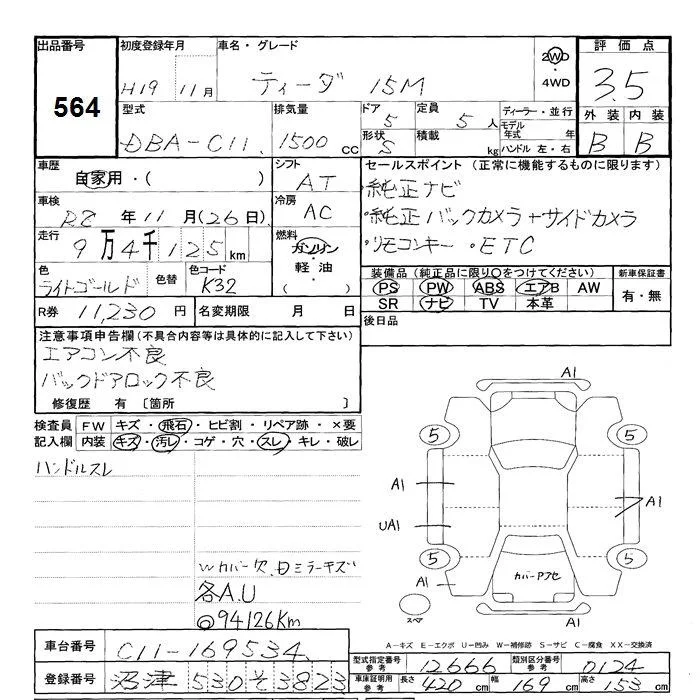 出品番号
564
初度登録年月
H19 11月
車名・グレード
ティーダ 15M
2WD
・
4WD
評価点
3.5
外装 内装
B B
型式
DBA-C11
排気量
1500 cc
ドア 5
形状 S
定員 5 人
積載 kg
ディーラー・並行
モデル年式 年
ハンドル 左・右
車歴
自家用・( )
シフト
AT
セールスポイント (正常に機能するものに限ります)
・純正ナビ
・純正バックカメラ+サイドカメラ
・リモコンキー ・ETC
車検
R8 年 11 月(26日)
冷房
AC
走行
9万4千125 km
燃料
ガソリン
・
軽油
( )
色
ライトゴールド
色替
色コード
K32
装備品 (純正品に限り○をつけてください)
PS PW ABS エアB AW
SR ナビ TV 本革
新車保証書
有・無
R券 11,230 円
名変期限 月 日
後日品
注意事項申告欄(不具合内容等は具体的に記入して下さい)
エアコン不良
バックドアロック不良
修復歴 有〔箇所 〕
検査員記入欄
FW キズ・飛石・ヒビ割・リペア跡・×要
内装 キズ・汚レ・コゲ・穴・スレ・キレ・破レ
ハンドルスレ
Wカバー欠、目ミラーキズ
各A.U
◎94126Km
A1
5 5
A1
A1
UA1
5 5
A1
カバーアセ
スペア
A1
A-キズ E-エクボ U-凹み W-補修跡 S-サビ C-腐食 XX-交換済
車台番号
C11-169534
登録番号
沼津 530 そ 3823
型式指定番号 参考
12666
類別区分番号 参考
0124
車庫証明用 参考
長さ 420 cm 幅 169 cm 高さ 153 cm